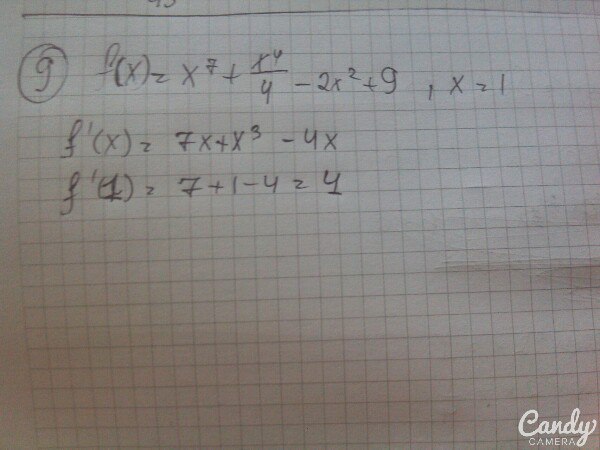 9 f(x) = x⁷ + x⁴/4 - 2x² + 9 , x = 1
f'(x) = 7x + x³ - 4x
f'(1) = 7 + 1 - 4 = 4
Candy
CAMERA